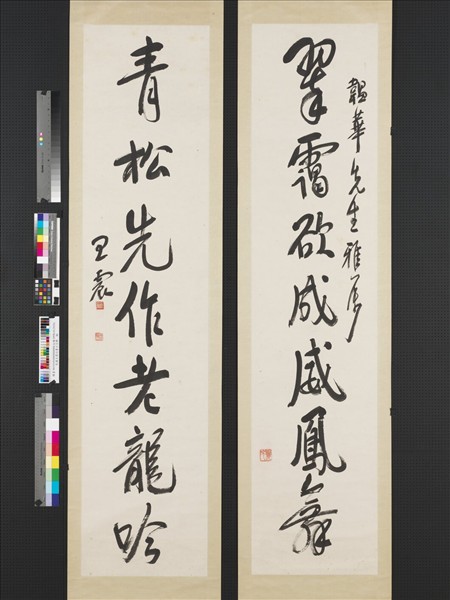 韞華先生雅屬
翠靄欲成威鳳舞
青松先作老龍吟
王震